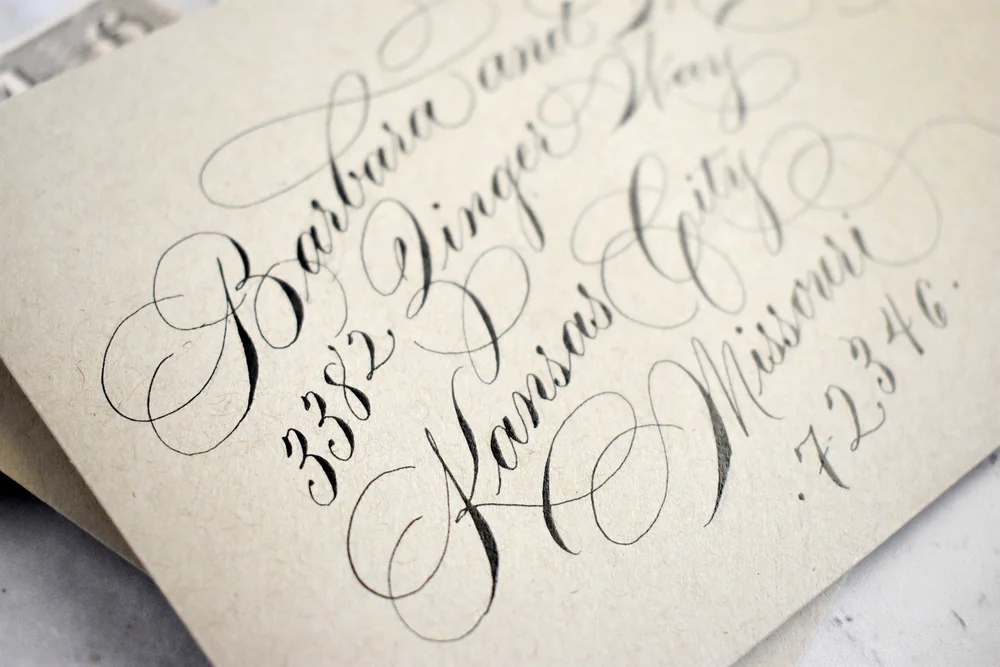 Barbara and
3382 Zinger Way
Kansas City
Missouri
.72346.